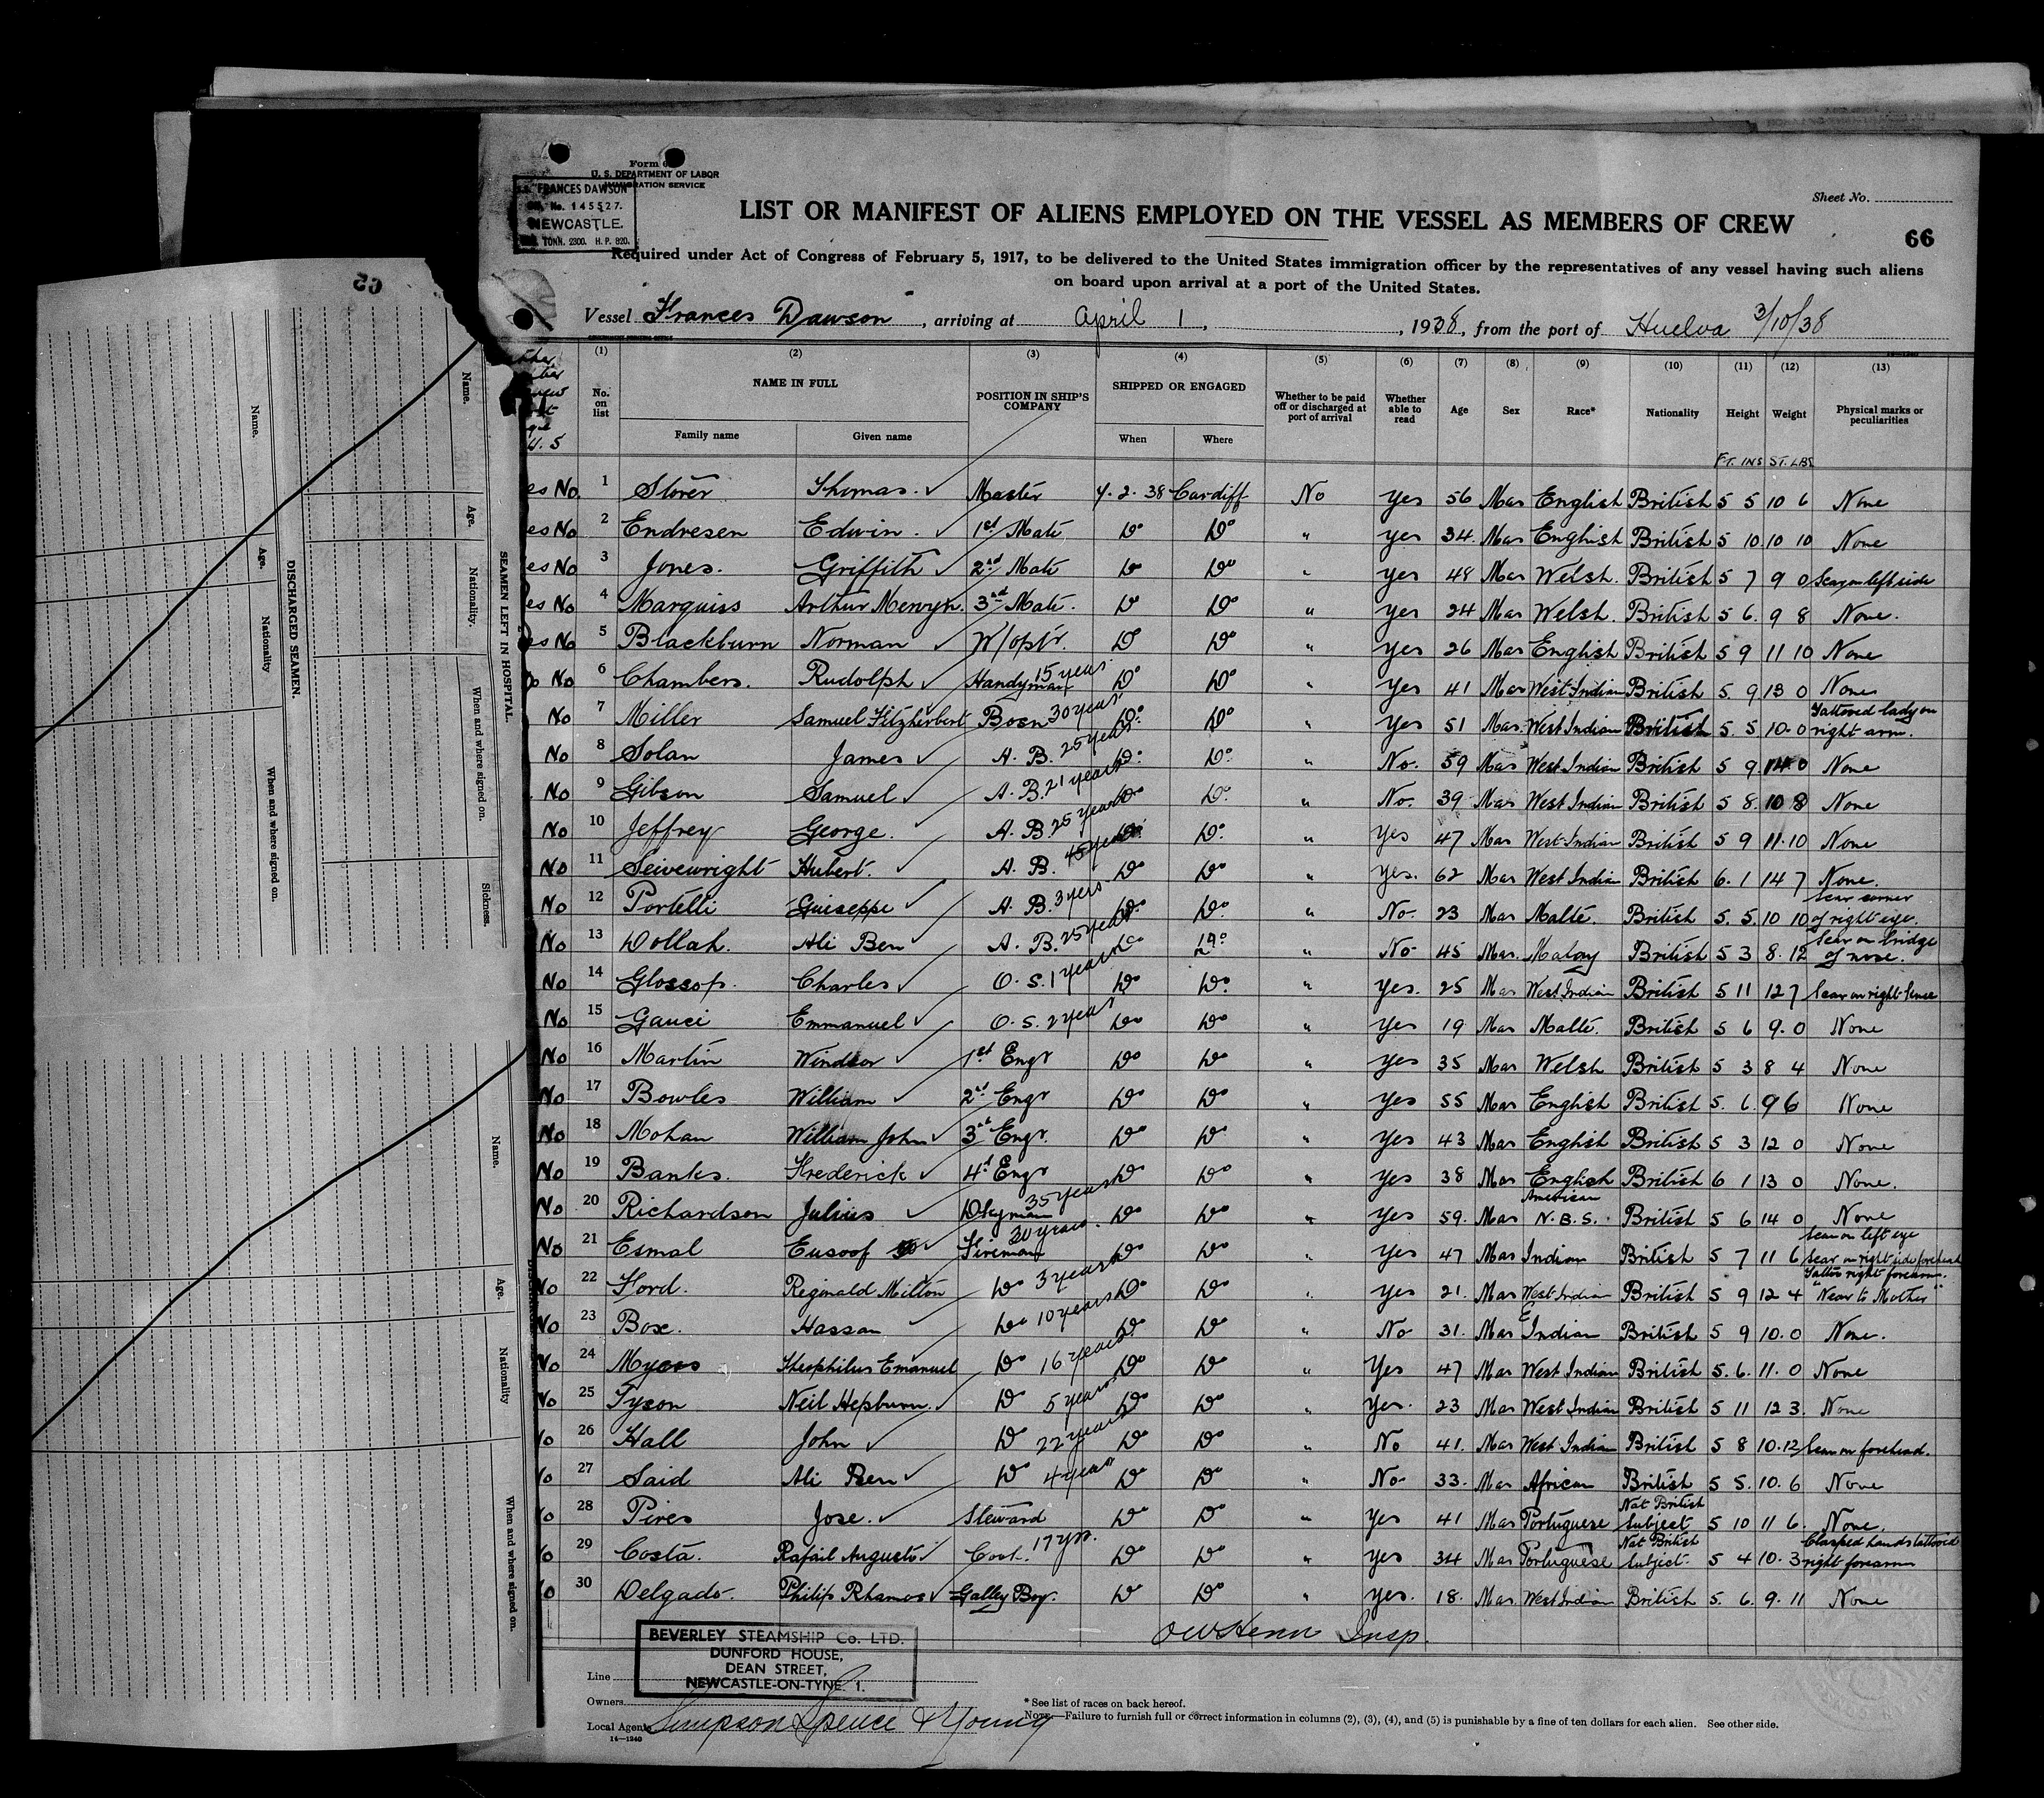 Form 6
U. S. DEPARTMENT OF LABOR
IMMIGRATION SERVICE
FRANCES DAWSON
No. 145527.
NEWCASTLE.
TONN. 2300. H. P. 820.
Sheet No.
LIST OR MANIFEST OF ALIENS EMPLOYED ON THE VESSEL AS MEMBERS OF CREW
66
Required under Act of Congress of February 5, 1917, to be delivered to the United States immigration officer by the representatives of any vessel having such aliens
on board upon arrival at a port of the United States.
Vessel Frances Dawson, arriving at April 1, 1938, from the port of Huelva 3/10/38
(1) (2) (3) (4) (5) (6) (7) (8) (9) (10) (11) (12) (13)
No. on list NAME IN FULL Family name Given name POSITION IN SHIP'S COMPANY SHIPPED OR ENGAGED When Where Whether to be paid off or discharged at port of arrival Whether able to read Age Sex Race* Nationality Height Weight Physical marks or peculiarities
FT. INS ST. LBS
es No 1 Storer Thomas. Master 7. 2. 38 Cardiff No Yes 56 Mar English British 5 5 10 6 None
es No 2 Endresen Edwin. 1st Mate Do Do " Yes 34. Mar English British 5 10 10 10 None
es No 3 Jones. Griffith 2nd Mate Do Do " Yes 48 Mar Welsh. British 5 7 9 0 Scar on left side
es No 4 Marquiss Arthur Mervyn. 3rd Mate. Do Do " Yes 24 Mar Welsh. British 5 6. 9 8 None.
es No 5 Blackburn Norman W/optr. Do Do " Yes 26 Mar English British 5 9 11 10 None
No 6 Chambers. Rudolph Handyman 15 years Do Do " Yes 41 Mar West Indian British 5. 9 13 0 None
No 7 Miller Samuel Fitzherbert Bosn 30 years Do Do " Yes 51 Mar. West Indian British 5. 5 10. 0 Tattooed lady on right arm.
No 8 Solan James A. B. 25 years Do Do " No. 59 Mar West Indian British 5 9. 14 0 None
No 9 Gibson Samuel A. B. 21 years Do Do " No. 39 Mar West Indian British 5 8. 10 8 None
No 10 Jeffrey George. A. B. 25 years Do Do " Yes 47 Mar West Indian British 5 9 11. 10 None
No 11 Seivewright Hubert. A. B. 45 years Do Do " Yes. 62 Mar West Indian British 6. 1 14 7 None.
No 12 Portelli Guiseppe A. B. 3 yers. Do Do " No. 23 Mar Malte. British 5. 5. 10 10 Scar corner of right eye.
No 13 Dollah. Ali Ben A. B. 25 years Do Do " No 45 Mar. Malay British 5 3 8. 12 Scar on bridge of nose.
No 14 Glossop. Charles O. S. 1 year Do Do " Yes. 25 Mar West Indian British 5 11 12 7 Scar on right knee
No 15 Gauci Emmanuel O. S. 2 year Do Do " Yes 19 Mar Malte. British 5 6 9. 0 None
No 16 Martin Windsor 1st Engr Do Do " Yes 35 Mar Welsh British 5 3 8 4 None
No 17 Bowles William 2nd Engr Do Do " Yes 55 Mar English British 5. 6. 9 6 None
No 18 Mohan William John 3rd Engr. Do Do " Yes 43 Mar English British 5 3 12 0 None
No 19 Banks. Frederick 4th Engr Do Do " Yes 38 Mar English British 6 1 13 0 None.
No 20 Richardson Julius Dkyman 35 years Do Do " Yes 59. Mar American N. B. S. British 5 6 14 0 None
No 21 Esmal Eusoof Fireman 20 years. Do Do " Yes 47 Mar Indian British 5 7 11 6 Scar on left eye Scar on right side forehead
No 22 Ford. Reginald Milton Do 3 years Do Do " Yes 21. Mar West Indian British 5 9 12 4 Tattoo right forearm. "Near to Mother"
No 23 Box. Hassan Do 10 years Do Do " No 31. Mar E Indian British 5 9 10. 0 None.
No 24 Myers Theophilus Emanuel Do 16 years Do Do " Yes 47 Mar West Indian British 5. 6. 11. 0 None
No 25 Tyson Neil Hepburn. Do 5 years. Do Do " Yes. 23 Mar West Indian British 5 11 12 3. None
No 26 Hall John Do 22 years Do Do " No 41. Mar West Indian British 5 8 10. 12 Scar on forehead.
No 27 Said Ali Ben Do 4 years Do Do " No 33. Mar African British 5 5. 10. 6 None
No 28 Pires Jose. Steward Do Do " Yes 41 Mar Portuguese Nat British Subject 5 10 11 6. None.
No 29 Costa. Rafail Augusto Cook. 17 yrs. Do Do " Yes. 34 Mar Portuguese Nat British Subject. 5 4 10. 3 Clasped hands tattooed right forearm
No 30 Delgado. Philip Rhamos Galley Boy. Do Do " Yes. 18. Mar. West Indian British 5. 6. 9. 11 None
Insp.
BEVERLEY STEAMSHIP Co. LTD.
DUNFORD HOUSE,
DEAN STREET,
NEWCASTLE-ON-TYNE. 1.
Line
Owners
Local Agents Simpson Spence & Young
14—1240
* See list of races on back hereof.
NOTE.—Failure to furnish full or correct information in columns (2), (3), (4), and (5) is punishable by a fine of ten dollars for each alien. See other side.
SEAMEN LEFT IN HOSPITAL.
Name. Age. Nationality. When and where signed on. Sickness.
DISCHARGED SEAMEN.
Name. Age. Nationality When and where signed on.
Name. Age. Nationality When and where signed on.